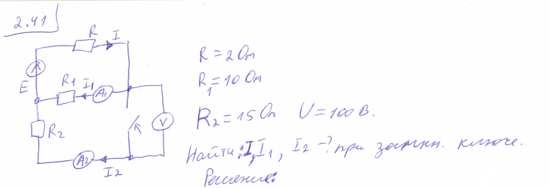 2.41
R I
R = 2 Ом
E R1 I1 A1
R1 = 10 Ом
R2 K V
R2 = 15 Ом U = 100 В.
A2 I2
Найти: I, I1, I2 -? при замкн. ключе.
Решение: